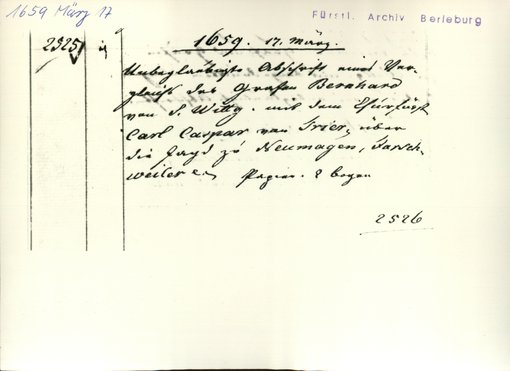 1659 März 17
Fürstl. Archiv Berleburg
1659. 17. März.
2525
Unbeglaubigte Abschrift eines Ver-
gleichs des Grafen Bernhard
von S. Wittg. mit dem Churfürst
Carl Caspar von Trier, über
die Jagd zu Neumagen,
weiler Papier. 2 bogen
2526